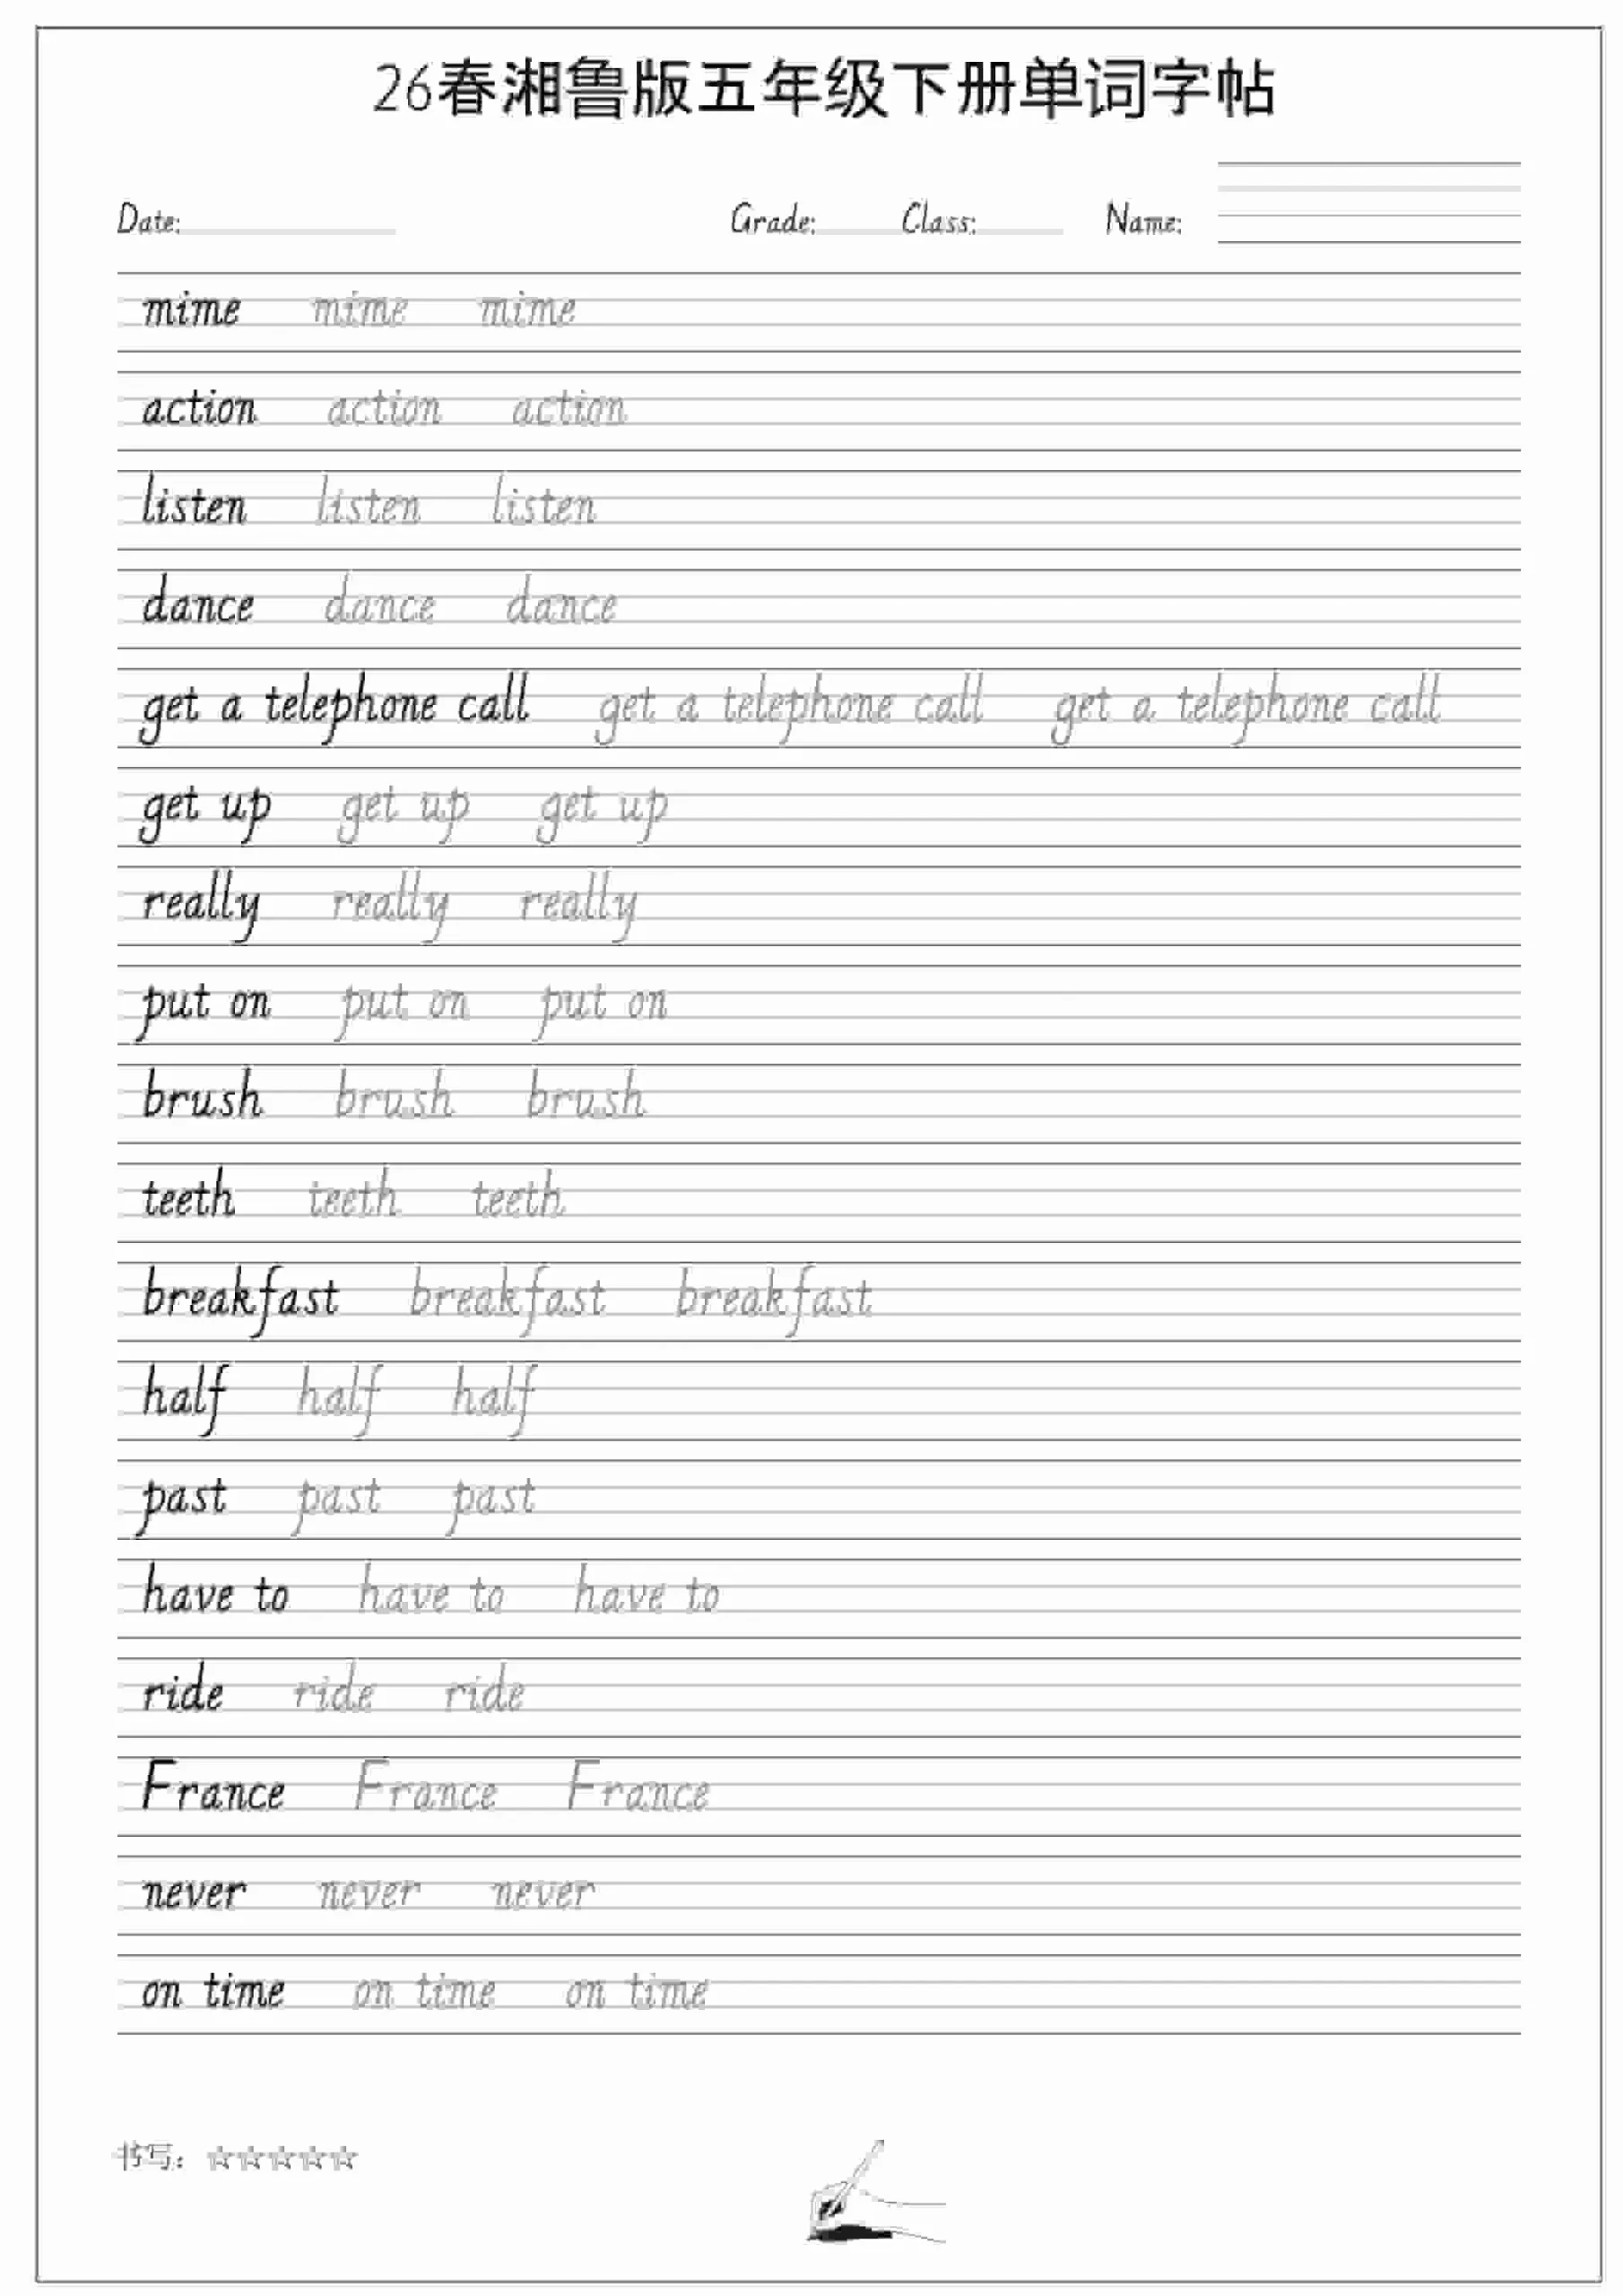 26春湘鲁版五年级下册单词字帖
Date: Grade: Class: Name:
mime mime mime
action action action
listen listen listen
dance dance dance
get a telephone call get a telephone call get a telephone call
get up get up get up
really really really
put on put on put on
brush brush brush
teeth teeth teeth
breakfast breakfast breakfast
half half half
past past past
have to have to have to
ride ride ride
France France France
never never never
on time on time on time
书写：☆☆☆☆☆